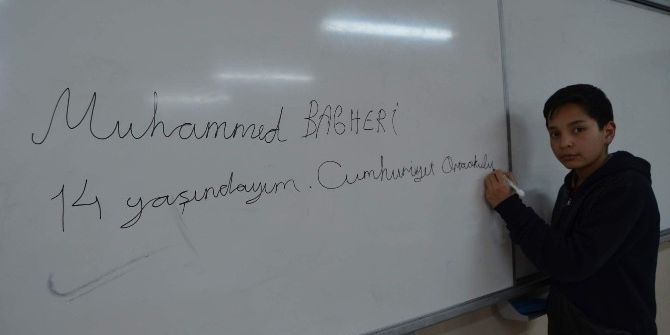 Muhammed BAGHERİ
14 yaşındayım. Cumhuriyet Ortaokulu